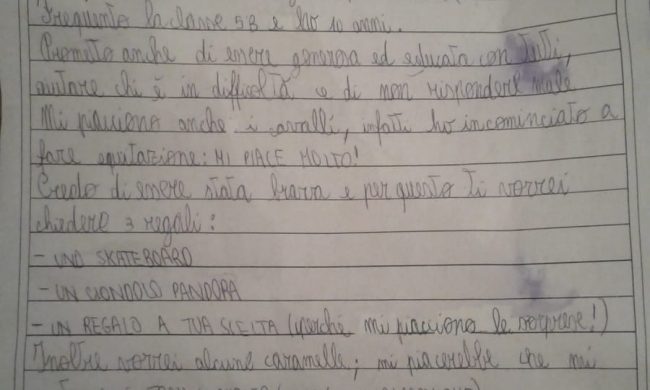 Frequento la classe 5B e ho 10 anni.
Prometto anche di essere generosa ed educata con tutti,
aiutare chi è in difficoltà e di non rispondere male
Mi piacciono anche i cavalli, infatti ho incominciato a
fare equitazione: MI PIACE MOLTO!
Credo di essere stata brava e per questo ti vorrei
chiedere 3 regali:
- UNO SKATEBOARD
- UN CIONDOLO PANDORA
- UN REGALO A TUA SCELTA (perché mi piacciono le sorprese!)
Inoltre vorrei alcune caramelle; mi piacerebbe che mi